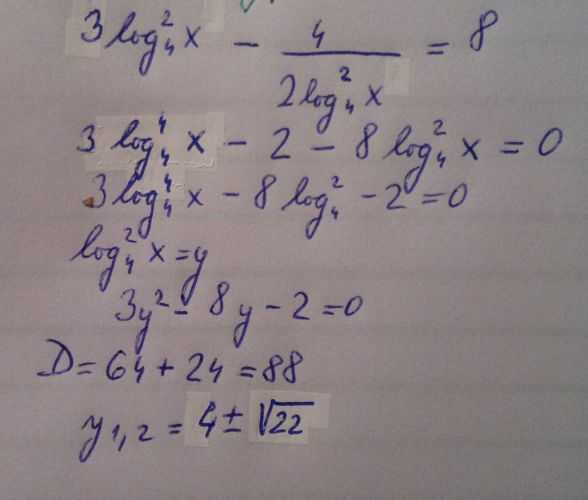 3 log²₄ x − 4 / (2 log²₄ x) = 8
3 log⁴₄ x − 2 − 8 log²₄ x = 0
3 log⁴₄ x − 8 log²₄ − 2 = 0
log²₄ x = y
3y² − 8y − 2 = 0
D = 64 + 24 = 88
y₁,₂ = 4 ± √22